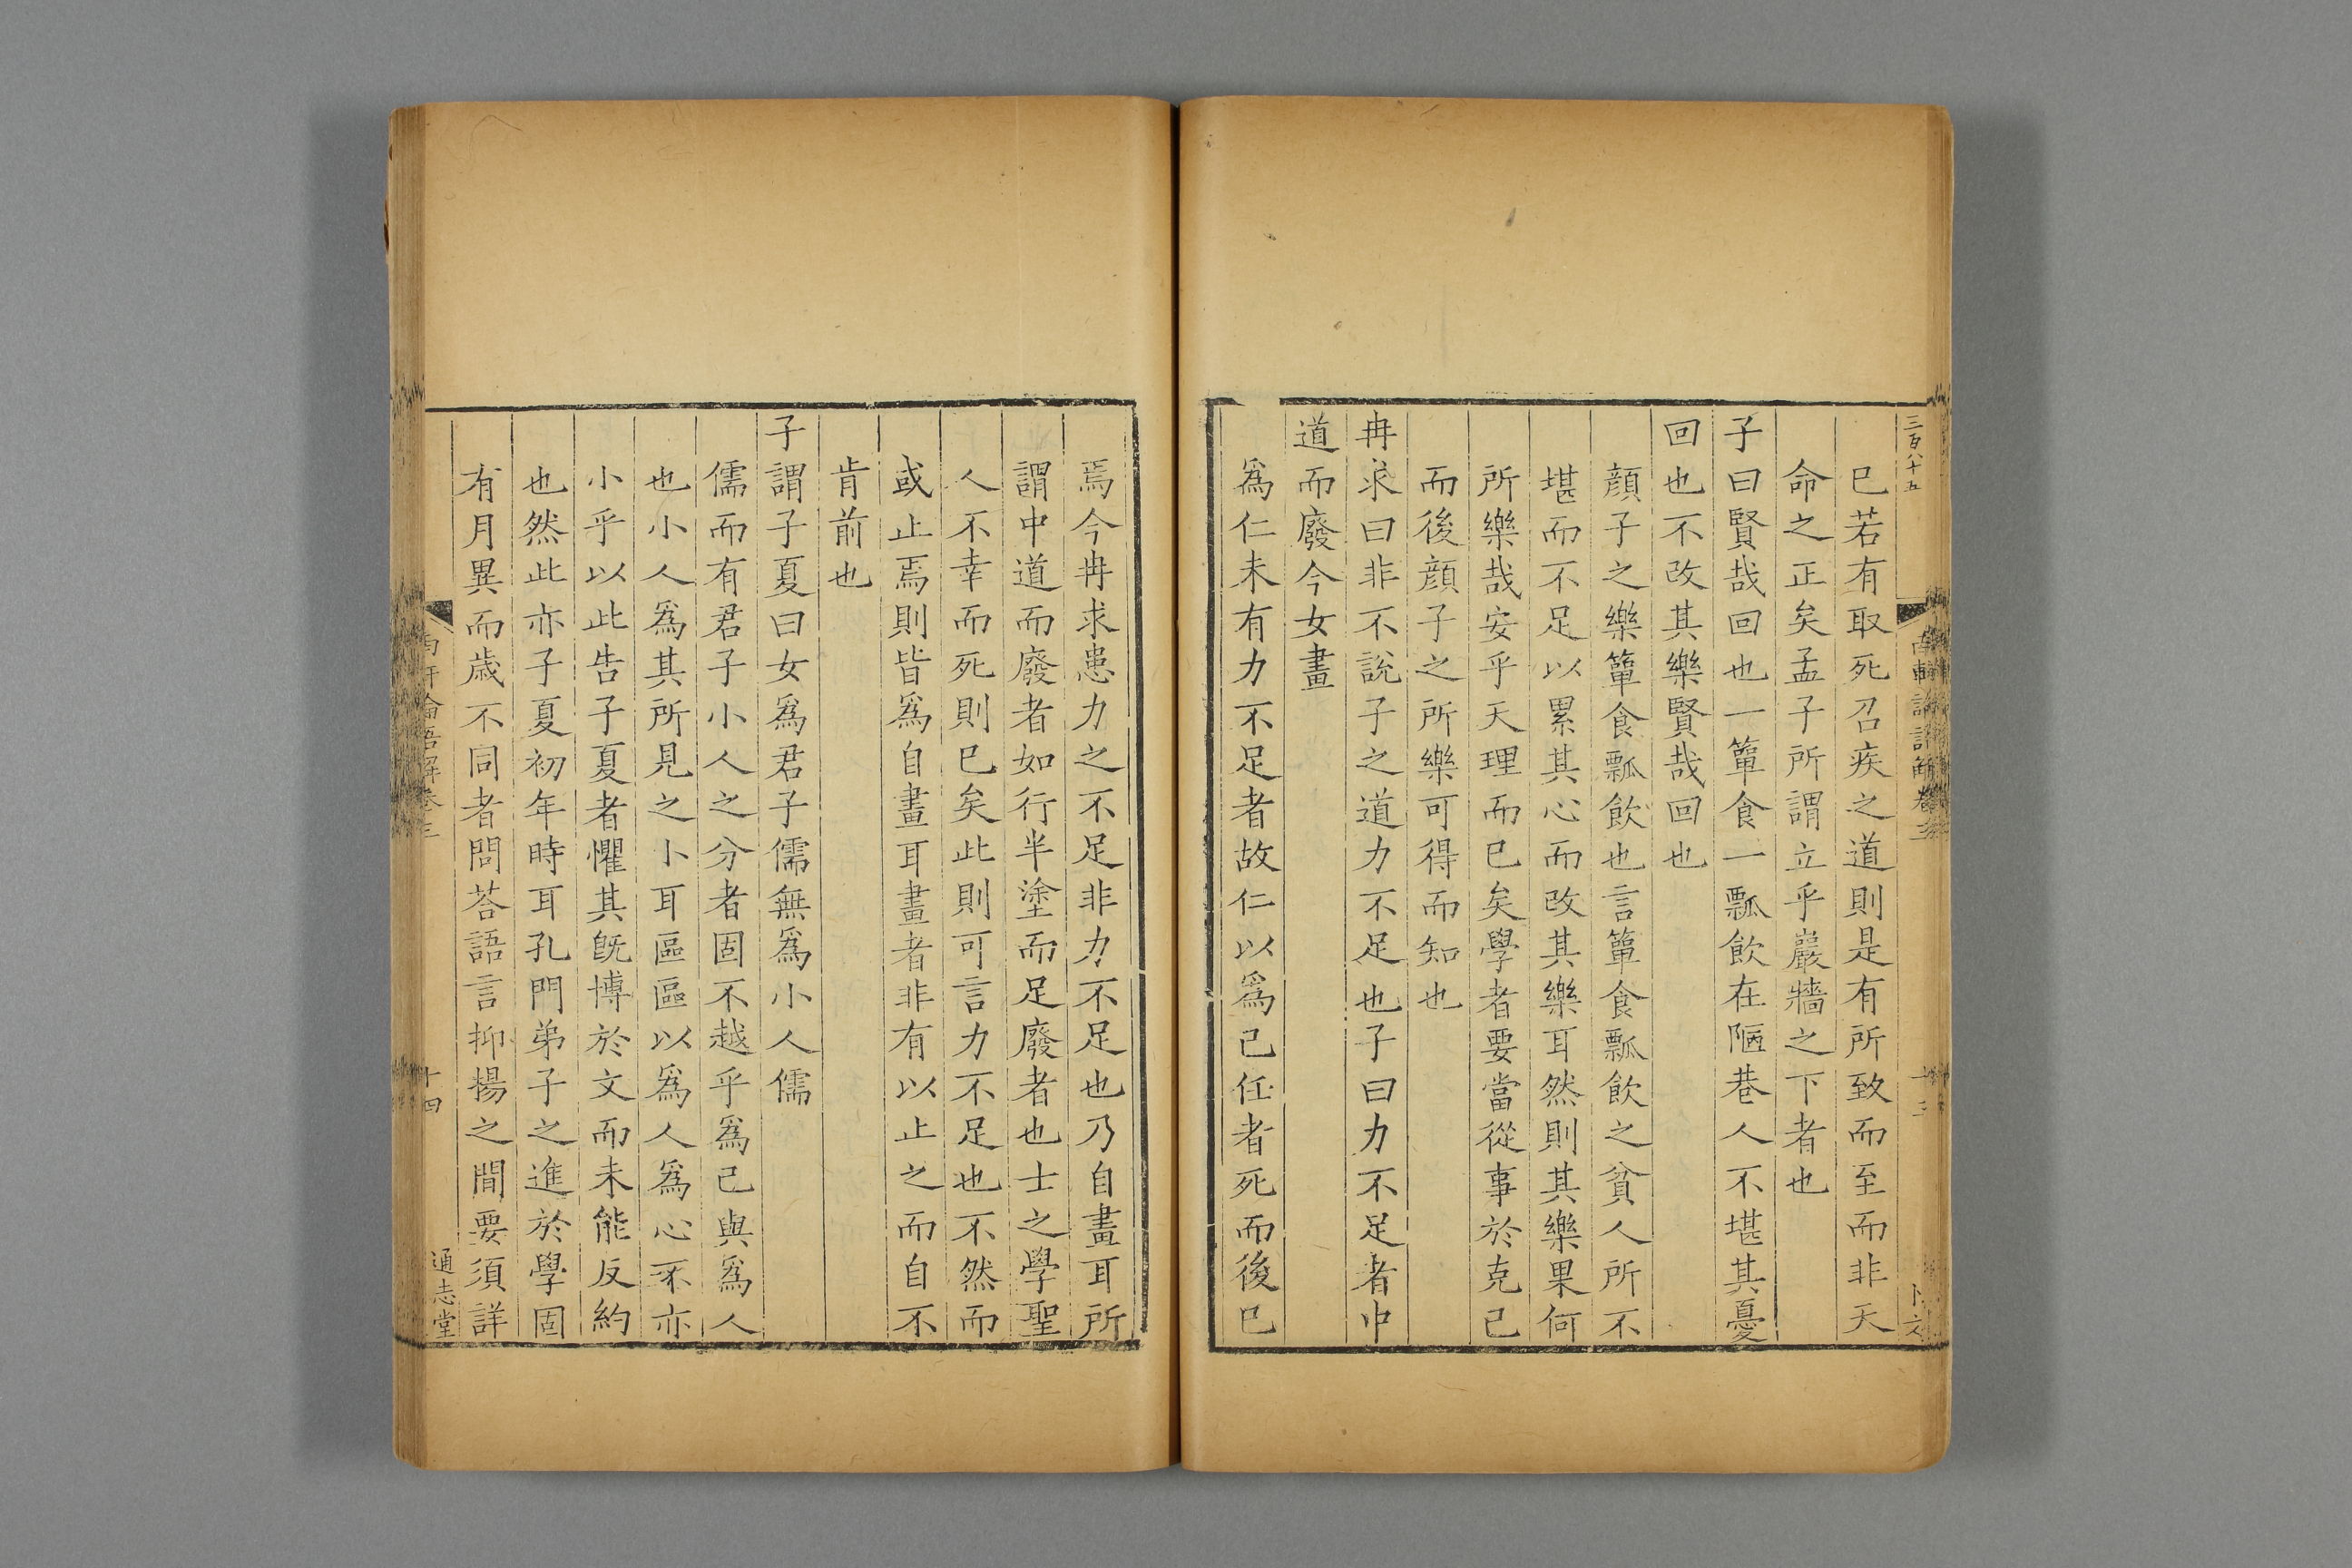 三百八十五
已若有取死召疾之道則是有所致而至而非天
命之正矣孟子所謂立乎巖牆之下者也
子曰賢哉回也一簞食一瓢飲在陋巷人不堪其憂
回也不改其樂賢哉回也
顔子之樂簞食瓢飲也言簞食瓢飲之貧人所不
堪而不足以累其心而改其樂耳然則其樂果何
所樂哉安乎天理而已矣學者要當從事於克己
而後顔子之所樂可得而知也
冉求曰非不說子之道力不足也子曰力不足者中
道而廢今女畫
爲仁未有力不足者故仁以爲己任者死而後已
焉今冉求患力之不足非力不足也乃自畫耳所
謂中道而廢者如行半塗而足廢者也士之學聖
人不幸而死則已矣此則可言力不足也不然而
或止焉則皆爲自畫耳畫者非有以止之而自不
肯前也
子謂子夏曰女爲君子儒無爲小人儒
儒而有君子小人之分者固不越乎爲己與爲人
也小人爲其所見之小耳區區以爲人爲心不亦
小乎以此告子夏者懼其旣博於文而未能反約
也然此亦子夏初年時耳孔門弟子之進於學固
有月異而歲不同者問荅語言抑揚之間要須詳
南軒論語解卷三
十四
通志堂